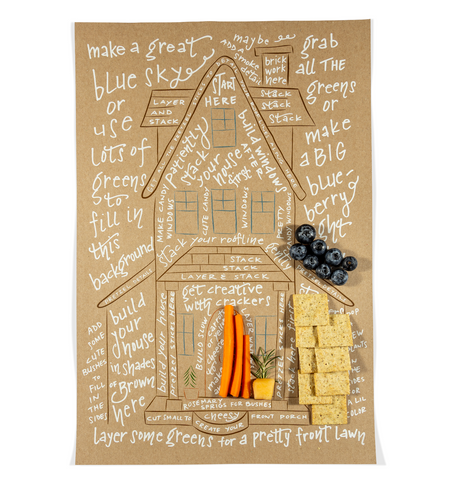 make a great
blue sky
or
use
lots of
greens
to
fill in
this
background
maybe
ADD A
smoke
detail
brick
work
here
grab
all THE
greens
or
make
a BIG
blue-
berry
START
HERE
LAYER
AND
STACK
Stack
Stack
Stack
patiently
stack
your
house
first
build windows
AFTER
MAKE CANDY
WINDOWS
CUTE CANDY
WINDOWS
PRETTY
CANDY WINDOWS
stack your roofline
STACK
STACK
LAYER & STACK
get creative
with crackers
build your house
PRETZEL STICKS HERE
build
your
house
in shades
of Brown
here
ADD
SOME
CUTE
BUSHES
TO
FILL
IN
THE
SIDES
ROSEMARY
SPRIGS FOR BUSHES
CUT SMALL TO
cheesy
FRONT PORCH
CREATE YOUR
Layer some greens for a pretty front lawn